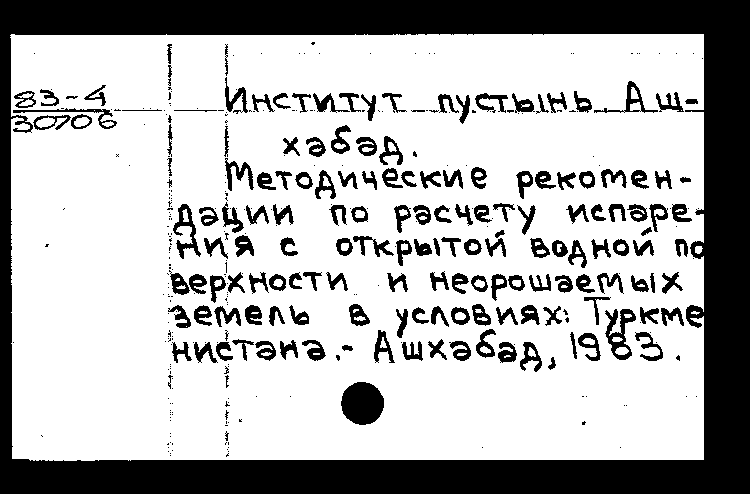 83-4
30706
Институт пустынь. Аш-
хабад.
Методические рекомен-
дации по расчету испаре-
ния с открытой водной по
верхности и неорошаемых
земель в условиях: Туркме
нистана.- Ашхабад, 1983.